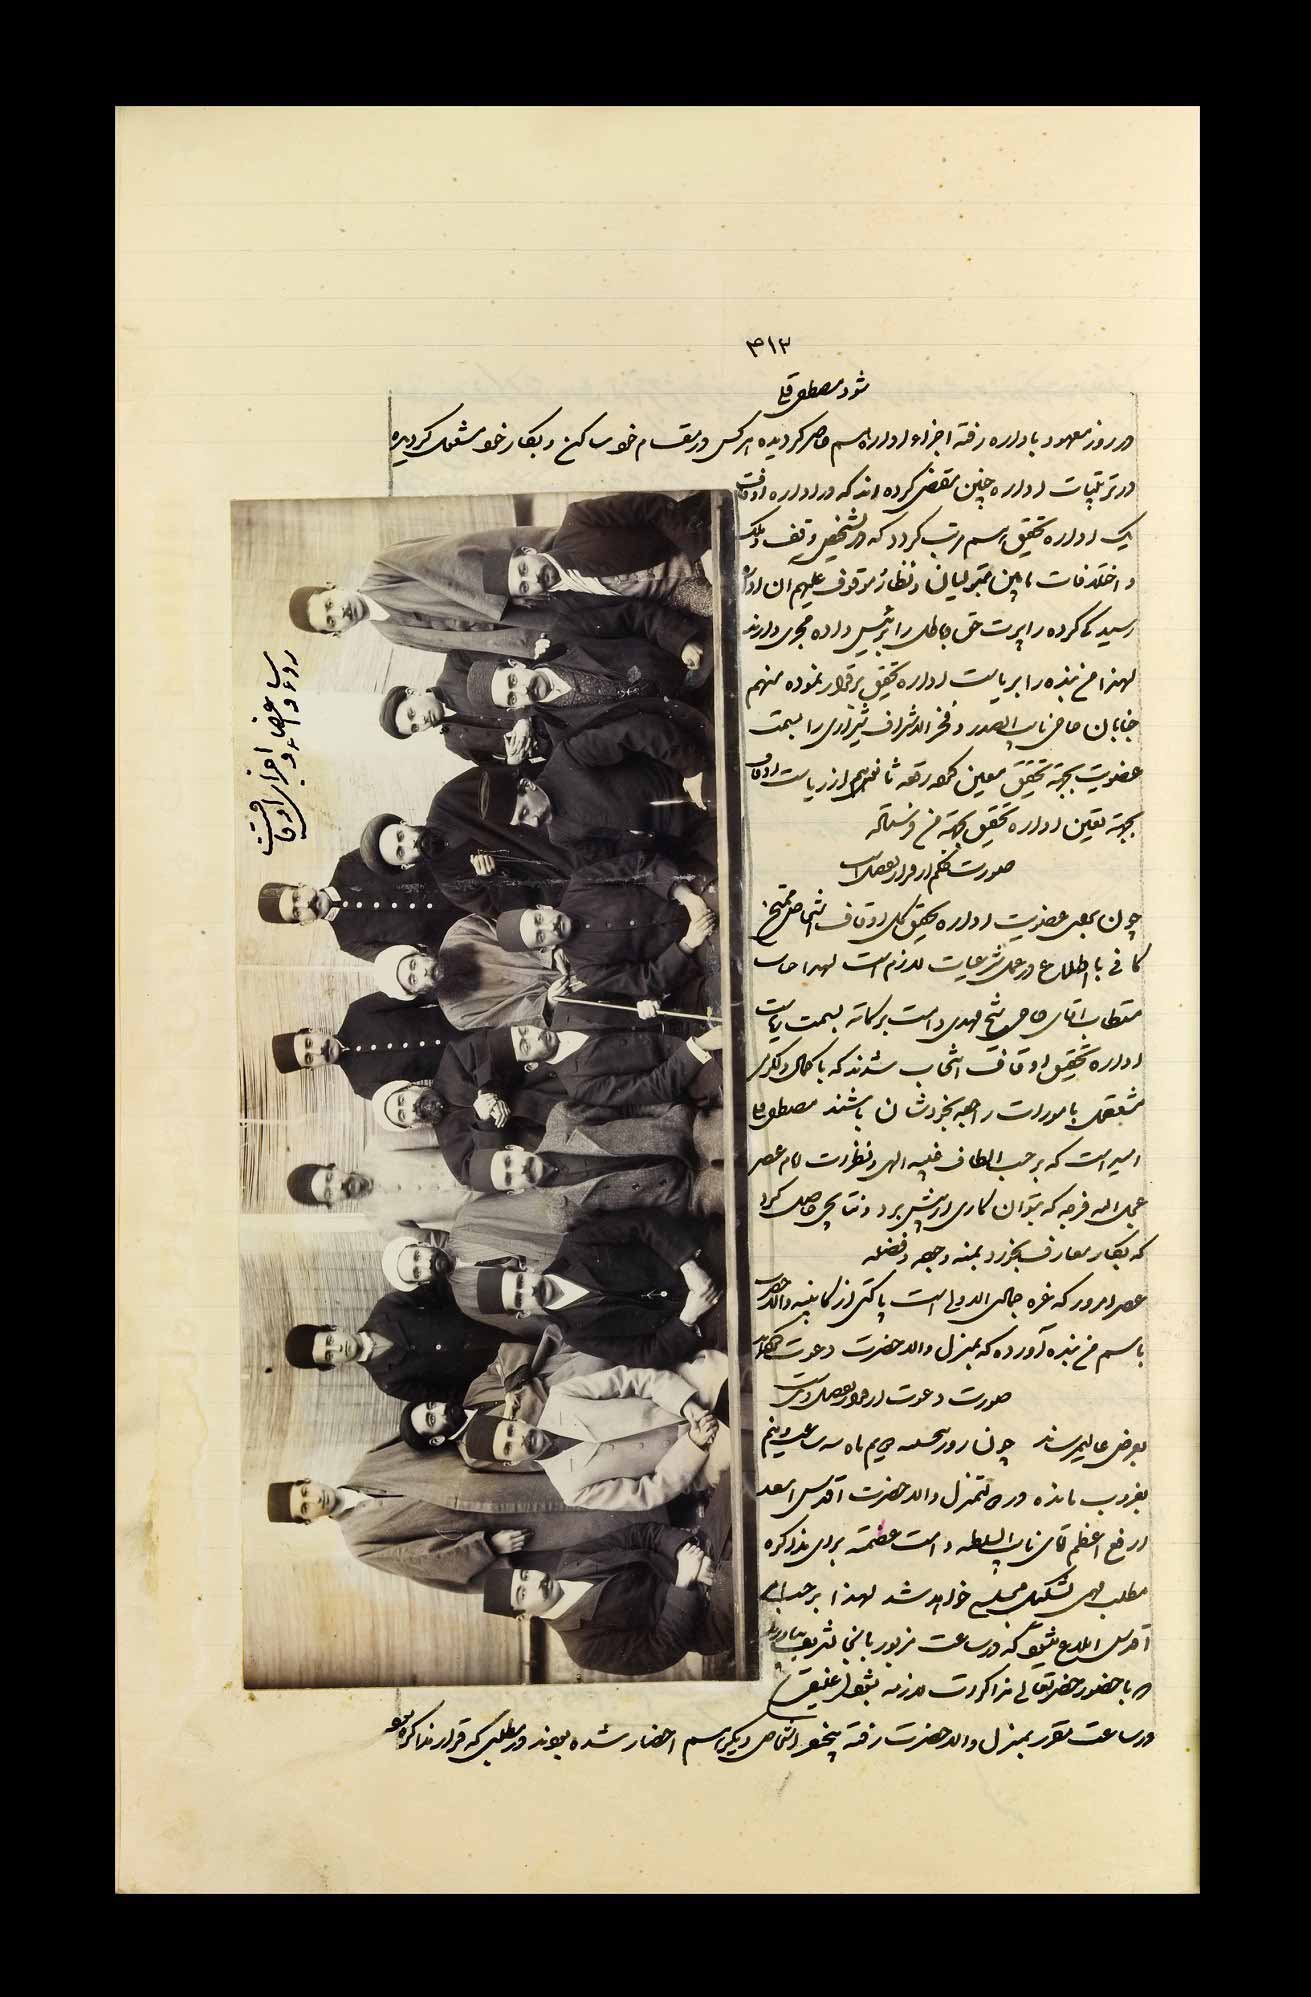 ۳۱۲
شود مصطفی قلی
در روز معهود باداره رفته اجزاء اداره هم حاضر گردیده هر کس در مقام خود ساکن و بکار خود مشغول گردیده
در ترتیبات اداره چنین مقتضی کرده اند که در اداره اوقاف
یک اداره تحقیق هم مرتب گردد که در تشخیص وقف و ملک
و اختلافات مابین متولیان و نظار و موقوف علیهم آن اداره
رسیدگی کرده راپرت حق و باطل را برئیس داده مجری دارند
لهذا من بنده را بریاست اداره تحقیق برقرار نموده منهم
جنابان حاجی نایب الصدر و فخر الاشراف شیرازی را بسمت
عضویت بجهة تحقیق معین کرده رقعه ثانوی هم از ریاست اوقاف
بجهة تعیین اداره تحقیق بجهة من فرستاده
صورت حکم از قرار تفصیل است
چون بجهة عضویت اداره تحقیق کل اوقاف اشخاص منتخب
کافی با اطلاع در عمل شرعیات لازم است لهذا جناب
مستطاب آقای حاجی شیخ مهدی دامت برکاته بسمت ریاست
اداره تحقیق اوقاف انتخاب شدند که با کمال دلگرمی
مشغول بامورات راجعه بخودشان باشند مصطفی قلی
امید است که بر حسب الطاف غیبیه الهی و نظرات امام عصر
عجل الله فرجه که بتوان کاری از پیش برد و نتایجی حاصل کرد
که بکار معارف بخورد بمنه و جوده و فضله
عصر امروز که غره جمادی الاولی است پاکتی از کابینه والاحضرت
باسم من بنده آورده که بمنزل والاحضرت دعوت
صورت دعوت از قرار تفصیل است
بعرض عالی میرساند چون روز ماه سه ساعت و نیم
بغروب مانده در منزل والاحضرت اقدس اسعد
ارفع اعظم آقای نایب السلطنه دامت عظمته برای مذاکره
مطلب مهمی تشکیل مجلسی خواهد شد لهذا بر حسب امر
اقدس ابلاغ میشود که در ساعت مزبور بآنجا تشریف بیاورند
که با حضور حضرتعالی مذاکرات لازمه بشود
در ساعت مقرر بمنزل والاحضرت رفته اشخاص دیگر هم احضار شده بودند در مطلبی که قرار مذاکره بود
رؤسا و اعضاء و اجزای اوقاف است